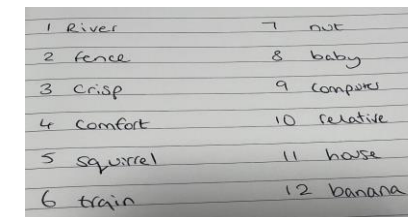 1 River
2 fence
3 Crisp
4 Comfort
5 squirrel
6 train
7 nut
8 baby
9 computer
10 relative
11 house
12 banana